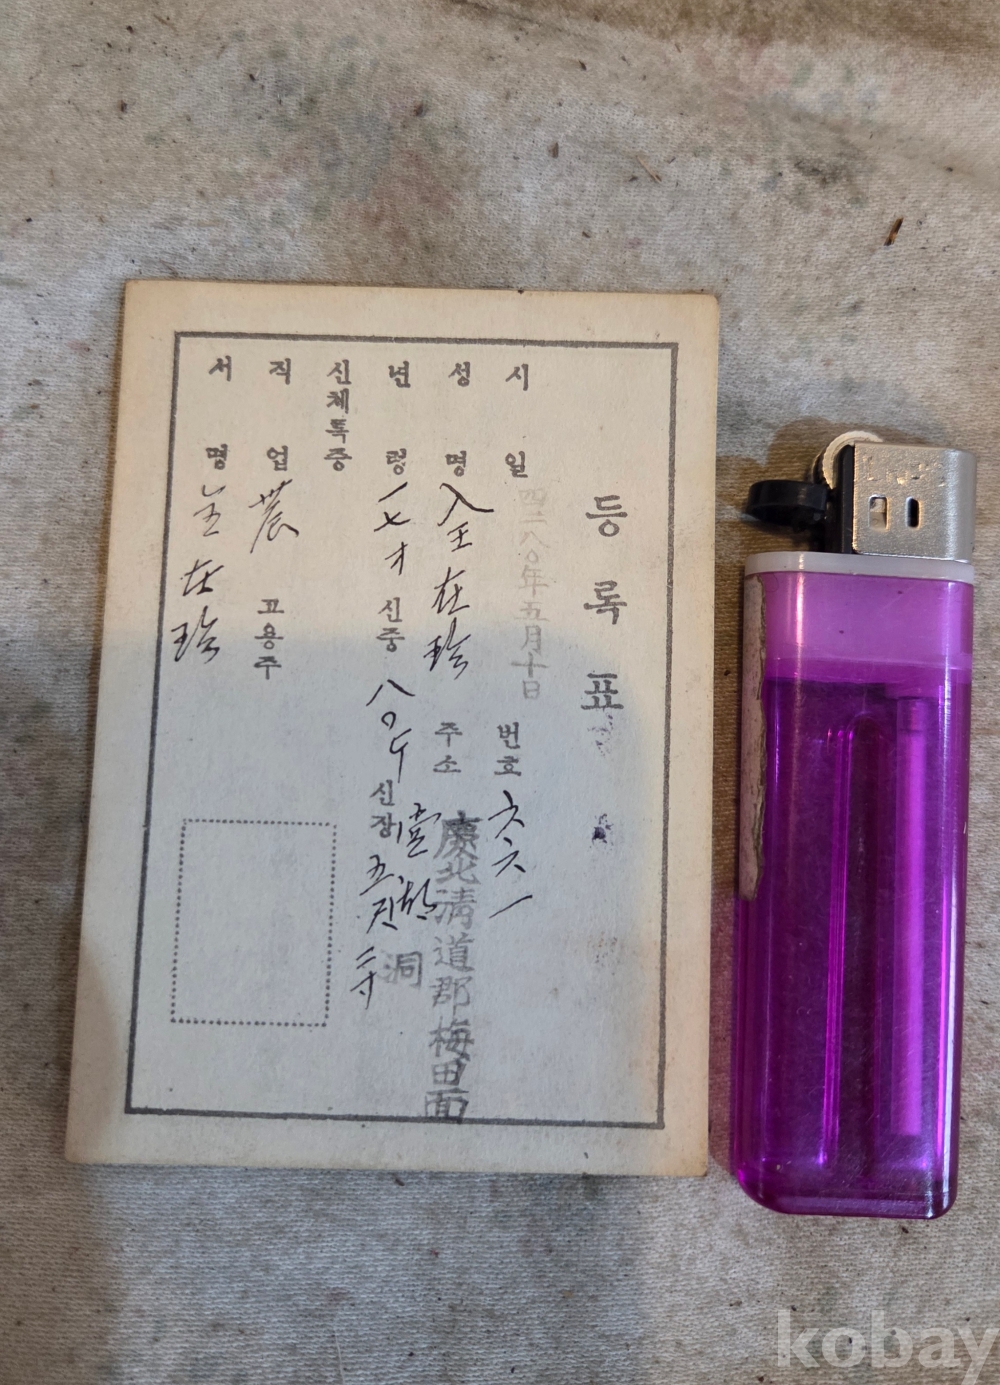 등록표
시일 四二八〇年五月十日 번호 六六一
성명 全在珍 주소 慶北清道郡梅田面
堂湖洞
년령 一七才 신중 八〇斤 신장 五尺二寸
신체특증
직업 農 고용주
서명 全在珍
kobay